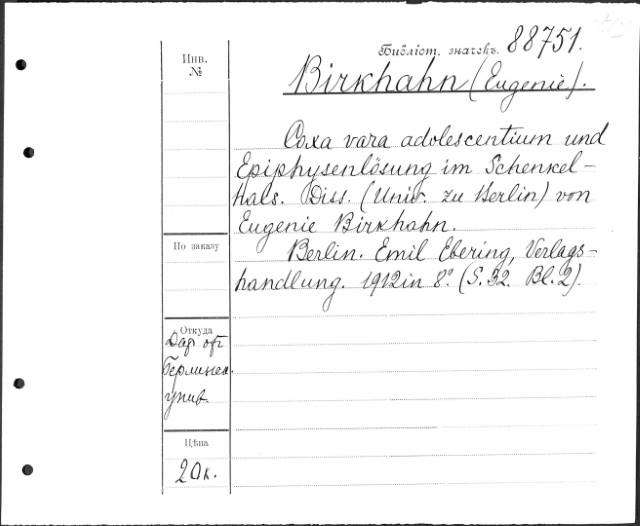 Библіот. значекъ. 88751.
Инв.
№
Birkhahn (Eugenie).
Coxa vara adolescentium und
Epiphysenlösung im Schenkel-
hals. Diss. (Univ. zu Berlin) von
Eugenie Birkhahn.
По заказу
Berlin. Emil Ebering, Verlags-
handlung. 1912 in 8º. (S. 32. Bl. 2).
Откуда
Дар от
Берлинск.
унив.
Цѣна
20 к.